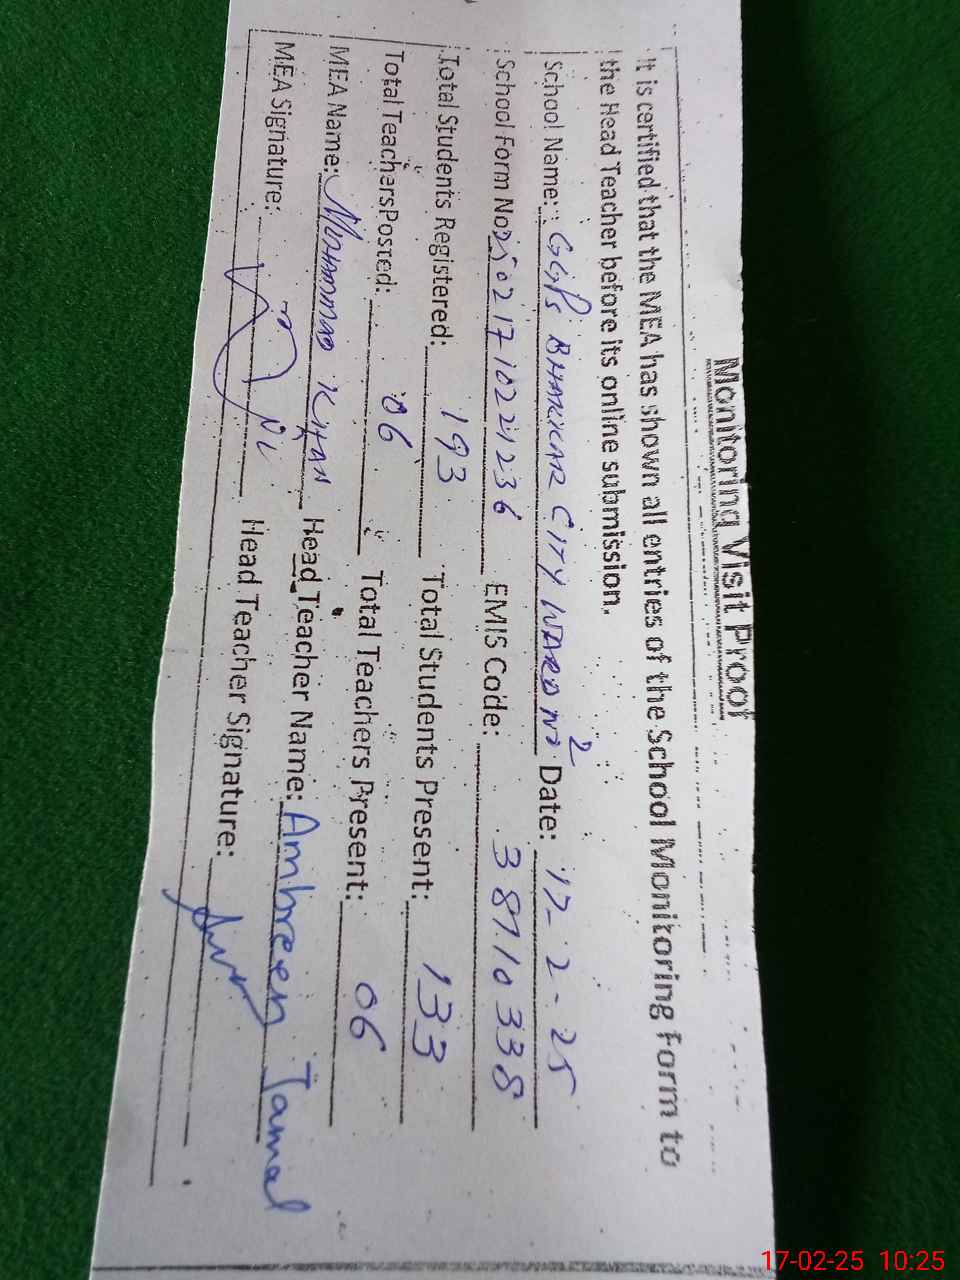 Monitoring Visit Proof
It is certified that the MEA has shown all entries of the School Monitoring Form to
the Head Teacher before its online submission.
School Name: GGPS BHAKKAR CITY WARD No 2 Date: 17-2-25
School Form No: 25021710221236 EMIS Code: 38710338
Total Students Registered: 193 Total Students Present: 133
Total Teachers Posted: 06 Total Teachers Present: 06
MEA Name: MUHAMMAD KHAN Head Teacher Name: Ambreen Jamal
MEA Signature: Head Teacher Signature:
17-02-25 10:25